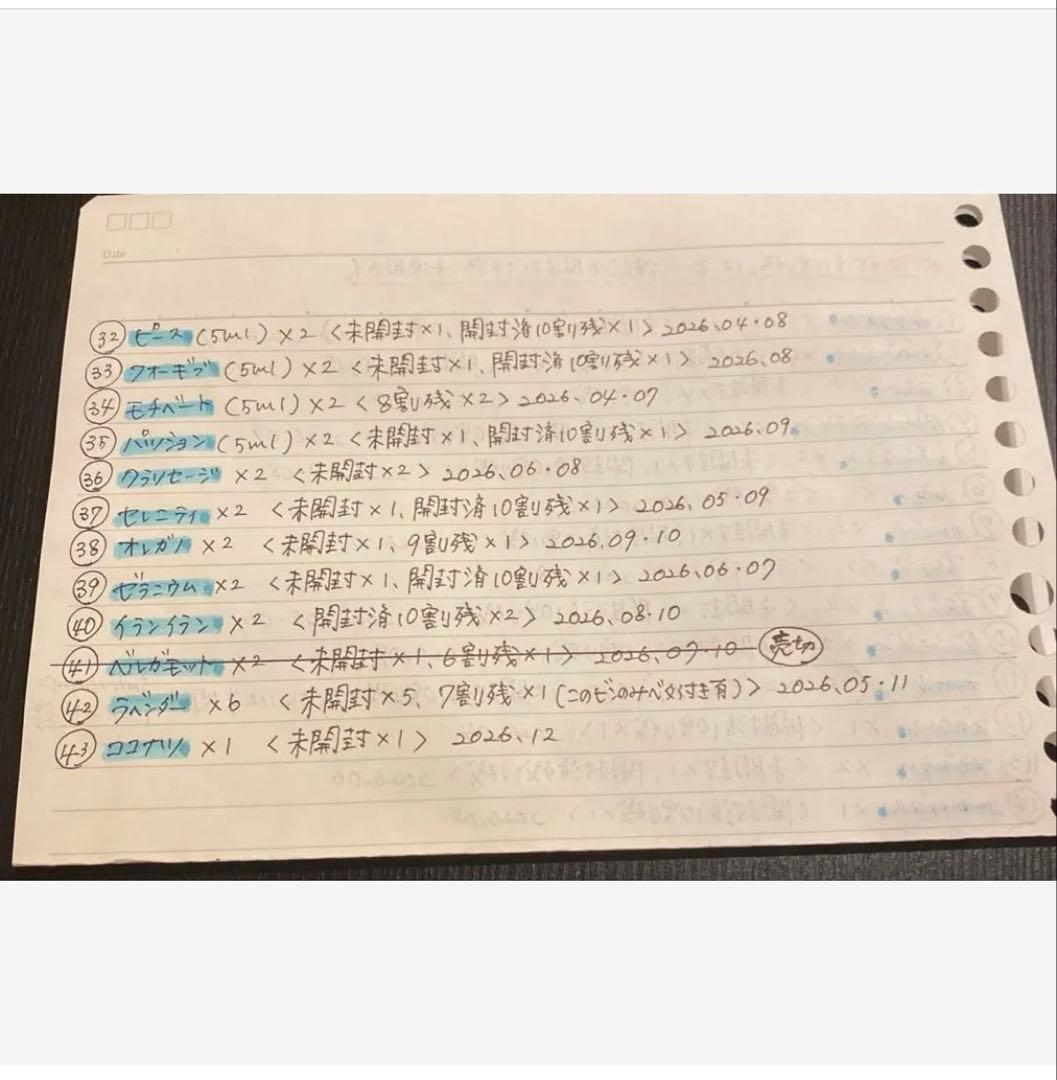 Date
㉜ ピース (5ml) ×2 <未開封×1、開封済10割残×1> 2026.04・08
㉝ フォーギブ (5ml) ×2 <未開封×1、開封済10割残×1> 2026.08
㉞ モチベート (5ml) ×2 <8割残×2> 2026.04・07
㉟ パッション (5ml) ×2 <未開封×1、開封済10割残×1> 2026.09
㊱ クラリセージ ×2 <未開封×2> 2026.06・08
㊲ セレニティ ×2 <未開封×1、開封済10割残×1> 2026.05・09
㊳ オレガノ ×2 <未開封×1、9割残×1> 2026.09・10
㊴ ゼラニウム ×2 <未開封×1、開封済10割残×1> 2026.06・07
㊵ イランイラン ×2 <開封済10割残×2> 2026.08・10
㊶ ベルガモット ×2 <未開封×1、6割残×1> 2026.07・10 売切
㊷ ラベンダー ×6 <未開封×5、7割残×1(このビンのみベタ付き有)> 2026.05・11
㊸ ココナツ ×1 <未開封×1> 2026.12